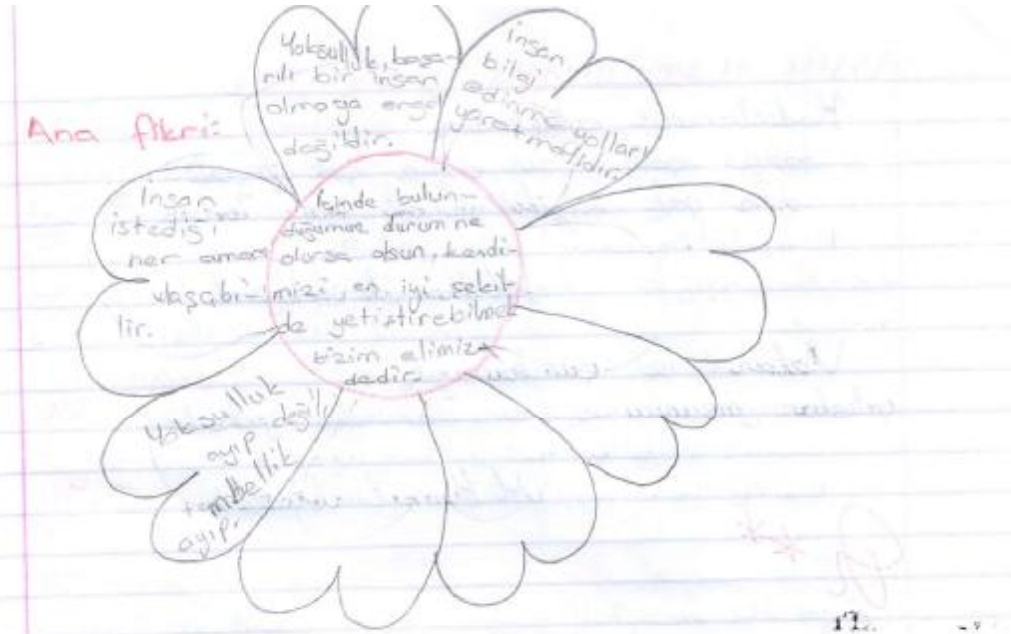 Ana fikri:
Yoksulluk, başa-
rılı bir insan
olmaya engel
değildir.
İnsan
bilgi
edinme yolları
yaratmalıdır.
İnsan
istediği
her amaca
ulaşabi-
lir.
İçinde bulun-
duğumuz durum ne
olursa olsun, kendi-
mizi, en iyi şekil-
de yetiştirebilmek
bizim elimiz-
dedir.
Yoksulluk
ayıp değil,
tembellik
ayıp.